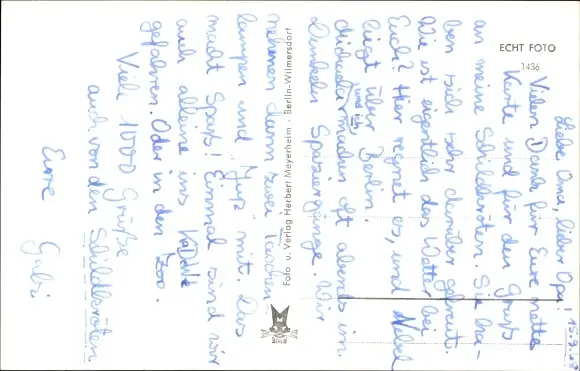 15.3.
Liebe Oma, lieber Opa!
Vielen Dank für Eure nette
Karte und für den Gruß
an meine Schildkröten. Sie ha-
ben sich sehr darüber gefreut.
Wie ist eigentlich das Wetter bei
Euch? Hier regnet es, und Nebel
liegt über Berlin.
und ich machen oft abends im
Dunkeln Spaziergänge. Wir
nehmen dann zwei Taschen
lampen und mit. Das
macht Spaß! Einmal sind wir
auch alleine ins KaDeWe
gefahren. Oder in den Zoo.
Viele 1000 Grüße
auch von den Schildkröten.
Eure
Gabi
ECHT FOTO
1436
Foto u. Verlag Herbert Meyerheim - Berlin-Wilmersdorf